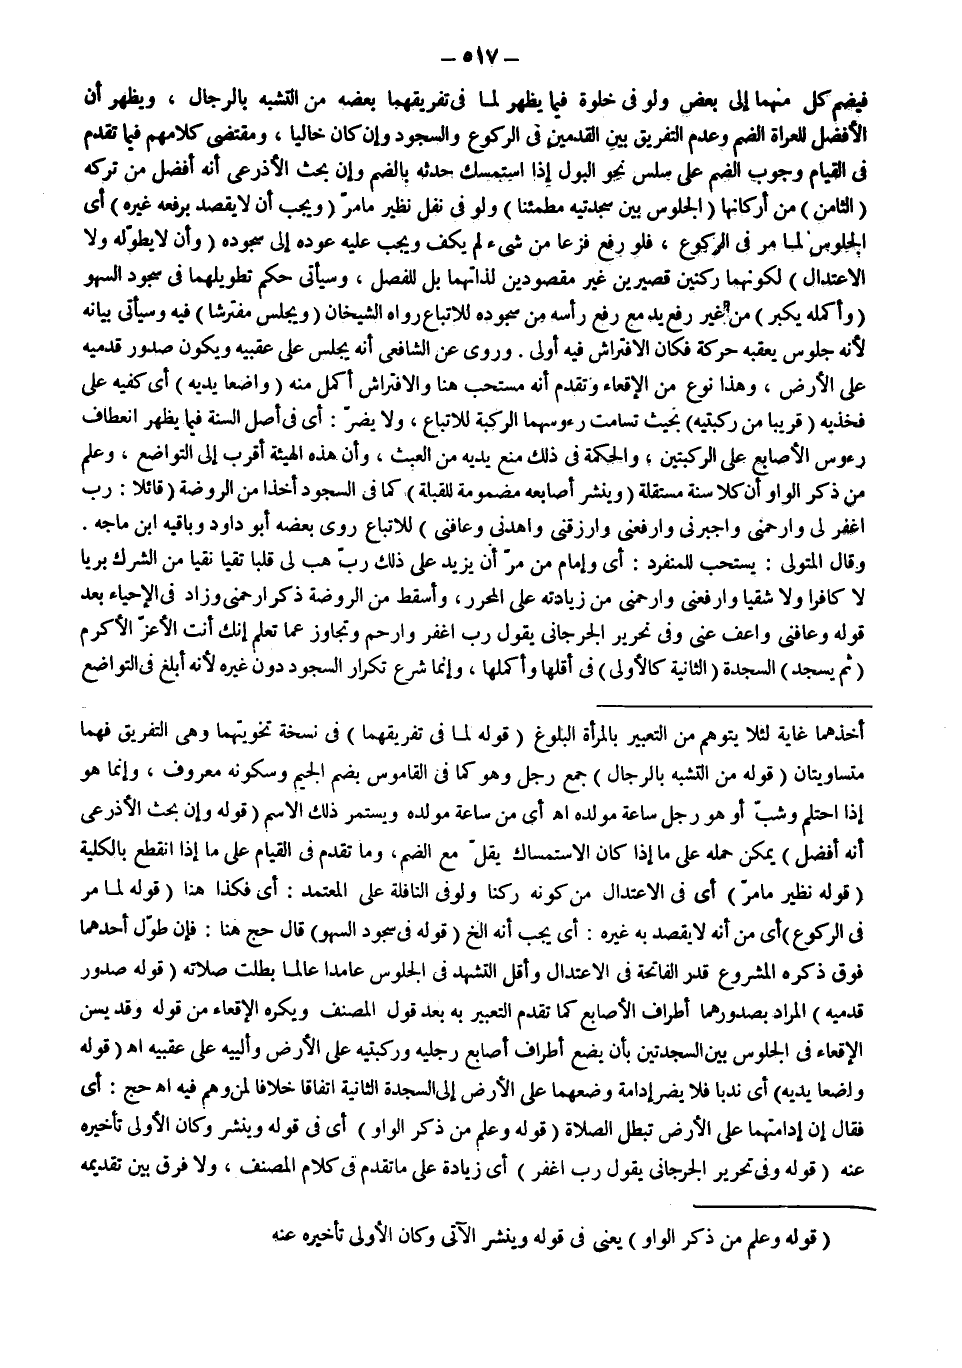 – ٥١٧ –
فيضم كل منهما إلى بعض ولو فى خلوة فيما يظهر لما فى تفريقهما بعضه من التشبه بالرجال ، ويظهر أن
الأفضل للعراة الضم وعدم التفريق بين القدمين فى الركوع والسجود وإن كان خاليا ، ومقتضى كلامهم فيما تقدم
فى القيام وجوب الضم على سلس نحو البول إذا استمسك حدثه بالضم وإن بحث الأذرعى أنه أفضل من تركه
( الثامن ) من أركانها ( الجلوس بين سجدتيه مطمئنا ) ولو فى نفل نظير مامرّ ( ويجب أن لايقصد برفعه غيره ) أى
الجلوس لما مر فى الركوع ، فلو رفع فزعا من شىء لم يكف ويجب عليه عوده إلى سجوده ( وأن لايطوّله ولا
الاعتدال ) لكونهما ركنين قصيرين غير مقصودين لذاتهما بل للفصل ، وسيأتى حكم تطويلهما فى سجود السهو
( وأكمله يكبر ) من غير رفع يد مع رفع رأسه من سجوده للاتباع رواه الشيخان ( ويجلس مفترشا ) فيه وسيأتى بيانه
لأنه جلوس يعقبه حركة فكان الافتراش فيه أولى . وروى عن الشافعى أنه يجلس على عقبيه ويكون صدور قدميه
على الأرض ، وهذا نوع من الإقعاء وتقدم أنه مستحب هنا والافتراش أكمل منه ( واضعا يديه ) أى كفيه على
فخذيه ( قريبا من ركبتيه) بحيث تسامت رءوسهما الركبة للاتباع ، ولا يضرّ : أى فى أصل السنة فيما يظهر انعطاف
رءوس الأصابع على الركبتين ، والحكمة فى ذلك منع يديه من العبث ، وأن هذه الهيئة أقرب إلى التواضع ، وعلم
من ذكر الواو أن كلا سنة مستقلة ( وينشر أصابعه مضمومة للقبلة ) كما فى السجود أخذا من الروضة ( قائلا : رب
اغفر لى وارحمنى واجبرنى وارفعنى وارزقنى واهدنى وعافنى ) للاتباع روى بعضه أبو داود وباقيه ابن ماجه .
وقال المتولى : يستحب للمنفرد : أى وإمام من مرّ أن يزيد على ذلك ربّ هب لى قلبا تقيا نقيا من الشرك بريا
لا كافرا ولا شقيا وارفعنى وارحمنى من زيادته على المحرر، وأسقط من الروضة ذكر ارحمنى وزاد فى الإحياء بعد
قوله وعافنى واعف عنى وفى تحرير الجرجانى يقول رب اغفر وارحم وتجاوز عما تعلم إنك أنت الأعزّ الأكرم
( ثم يسجد ) السجدة ( الثانية كالأولى ) فى أقلها وأكملها ، وإنما شرع تكرار السجود دون غيره لأنه أبلغ فى التواضع
أخذهما غاية لئلا يتوهم من التعبير بالمرأة البلوغ ( قوله لما فى تفريقهما ) فى نسخة تخويتهما وهى التفريق فهما
متساويتان ( قوله من التشبه بالرجال ) جمع رجل وهو كما فى القاموس بضم الجيم وسكونه معروف ، وإنما هو
إذا احتلم وشبّ أو هو رجل ساعة مولده اه أى من ساعة مولده ويستمر ذلك الاسم ( قوله وإن بحث الأذرعى
أنه أفضل ) يمكن حمله على ما إذا كان الاستمساك يقلّ مع الضم، وما تقدم فى القيام على ما إذا انقطع بالكلية
( قوله نظير مامرّ ) أى فى الاعتدال من كونه ركنا ولو فى النافلة على المعتمد : أى فكذا هنا ( قوله لما مر
فى الركوع) أى من أنه لايقصد به غيره : أى يجب أنه الخ ( قوله فى سجود السهو) قال حج هنا : فإن طوّل أحدهما
فوق ذكره المشروع قدر الفاتحة فى الاعتدال وأقل التشهد فى الجلوس عامدا عالما بطلت صلاته ( قوله صدور
قدميه ) المراد بصدورهما أطراف الأصابع كما تقدم التعبير به بعد قول المصنف ويكره الإقعاء من قوله وقد يسن
الإقعاء فى الجلوس بين السجدتين بأن يضع أطراف أصابع رجليه وركبتيه على الأرض وألييه على عقبيه اه ( قوله
واضعا يديه) أى ندبا فلا يضر إدامة وضعهما على الأرض إلى السجدة الثانية اتفاقا خلافا لمن وهم فيه اه حج : أى
فقال إن إدامتهما على الأرض تبطل الصلاة ( قوله وعلم من ذكر الواو ) أى فى قوله وينشر وكان الأولى تأخيره
عنه ( قوله وفى تحرير الجرجانى يقول رب اغفر ) أى زيادة على ماتقدم فى كلام المصنف ، ولا فرق بين تقديمه
( قوله وعلم من ذكر الواو ) يعنى فى قوله وينشر الآتى وكان الأولى تأخيره عنه